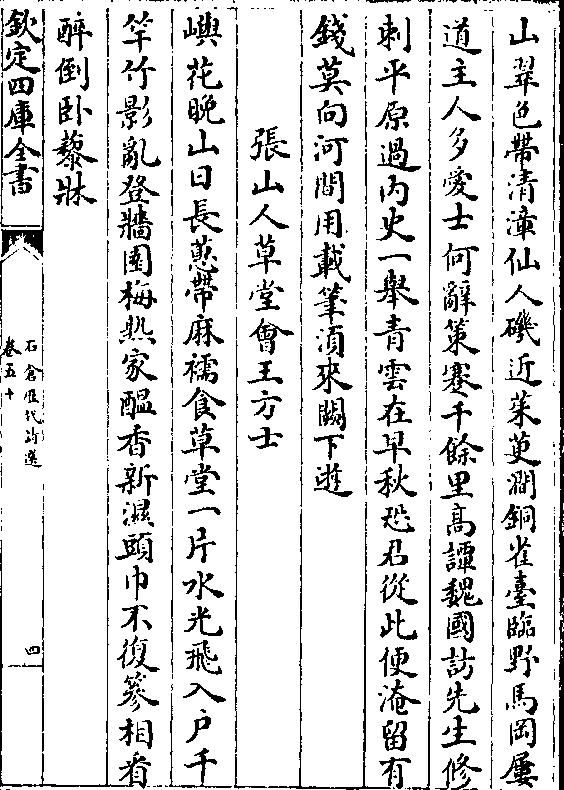 山翠色帶清漳仙人磯近茱萸澗銅雀臺臨野馬岡屢
道主人多愛士何辭策蹇千餘里高譚魏國訪先生修
刺平原過内史一舉青雲在早秋恐君從此便淹留有
錢莫向河間用載筆須來闕下遊
張山人草堂會王方士
嶼花晚山日長蕙帶麻襦食草堂一片水光飛入户千
竿竹影亂登牆園梅熟家醖香新濕頭巾不復篸相看
醉倒卧藜牀
欽定四庫全書
石倉歷代詩選
卷五十
四